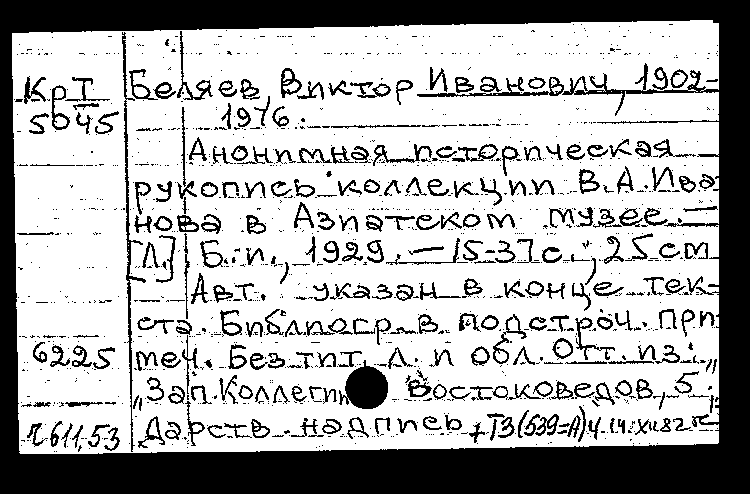 КрТ Беляев, Виктор Иванович, 1902-
5045 1976.
Анонимная историческая
рукопись коллекции В.А.Ива-
нова в Азиатском музее.—
[Л.], Б.и., 1929.—15-37с.; 25см
Авт. указан в конце тек-
ста. Библиогр. в подстроч. при-
6225 меч. Без тит. л. и обл. Отт. из:
"Зап. Коллегии Востоковедов, 5."
г611,53 Дарств. надпись +Т3(539=А)4